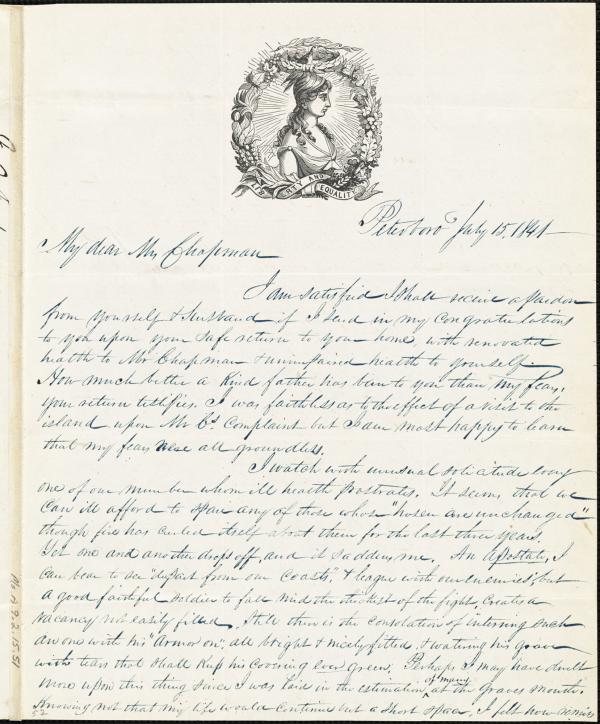 LIBERTY AND EQUALITY
Peterboro July 15. 1841
My dear Mrs Chapman
I am satisfied I shall receive a pardon
from yourself & husband if I send in my congratulations
to you upon your safe return to your home, with renovated
health to Mr Chapman & unimpaired health to yourself.
How much better a kind father has been to you than my fears,
your return testifies. I was faithless as to the effect of a visit to the
island upon Mr C's complaint but I am most happy to learn
that my fears were all groundless.
I watch with unusual solicitude every
one of our number whom ill health prostrates. It seems that we
can ill afford to spare any of those whose "hosen are unchanged"
though fire has curled itself about them for the last three years.
Yet one and another drops off, and it saddens me. An apostate, I
can bear to see "depart from our coasts," & league with our enemies, but
a good faithful soldier to fall mid the thickest of the fight, creates a
vacancy not easily filled. Still there is the consolation of interring such
an one with his "armor on", all bright & nicely fitted, & watering his grave
with tears that shall keep his covering ever green. Perhaps I may have dwelt
more upon this thing since I was laid in the estimation of many at the graves mouth.
Knowing not that my life would continue but a short space, I felt how
52
Ms.A.9.2.15.51